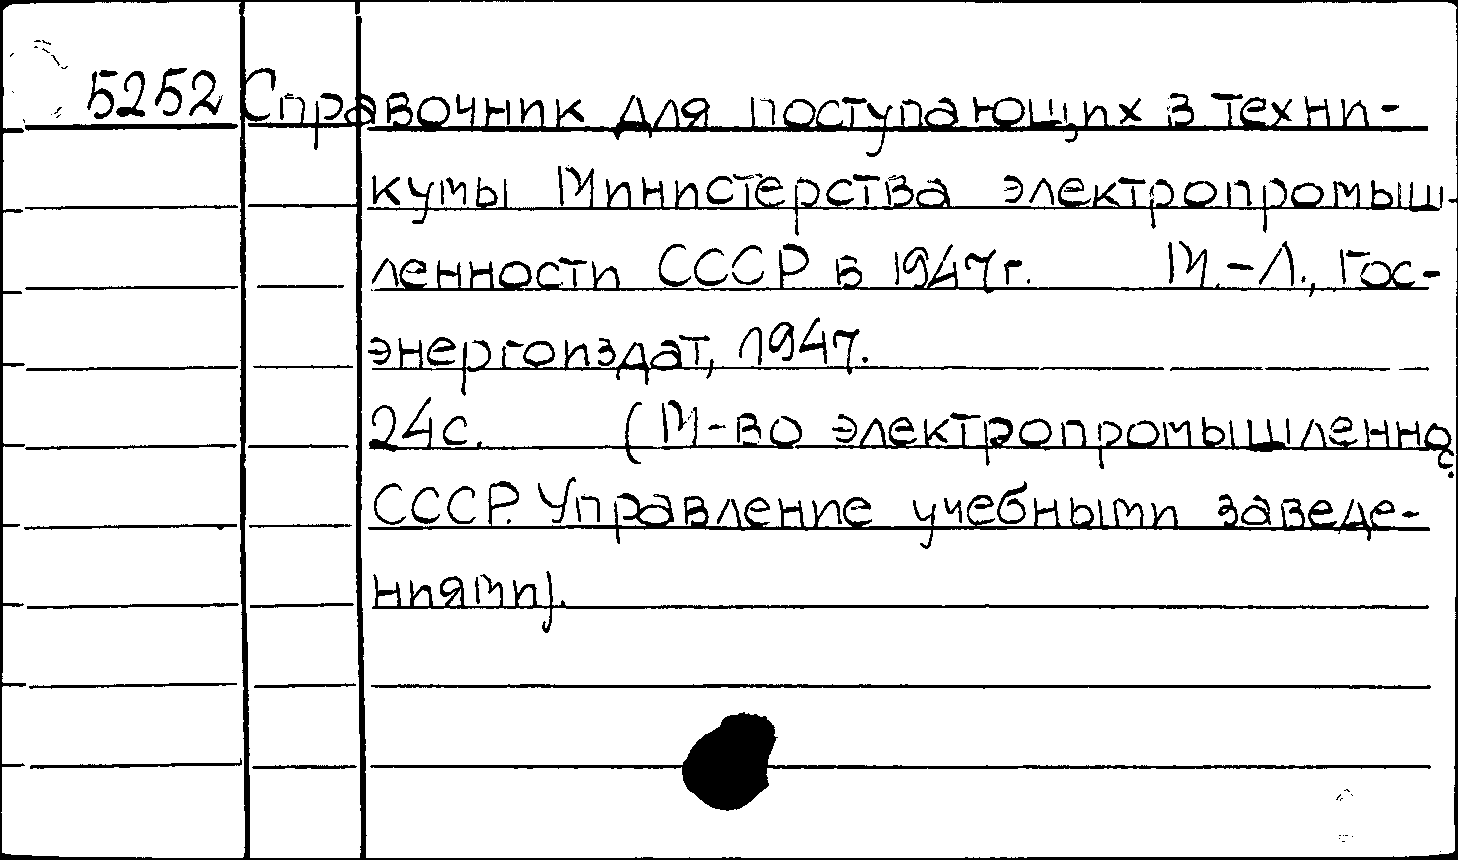 5252 Справочник для поступающих в техни-
кумы Министерства электропромыш-
ленности СССР в 1947г. М.-Л., Гос-
энергоиздат, 1947.
24с. (М-во электропромышленнос.
СССР. Управление учебными заведе-
ниями).